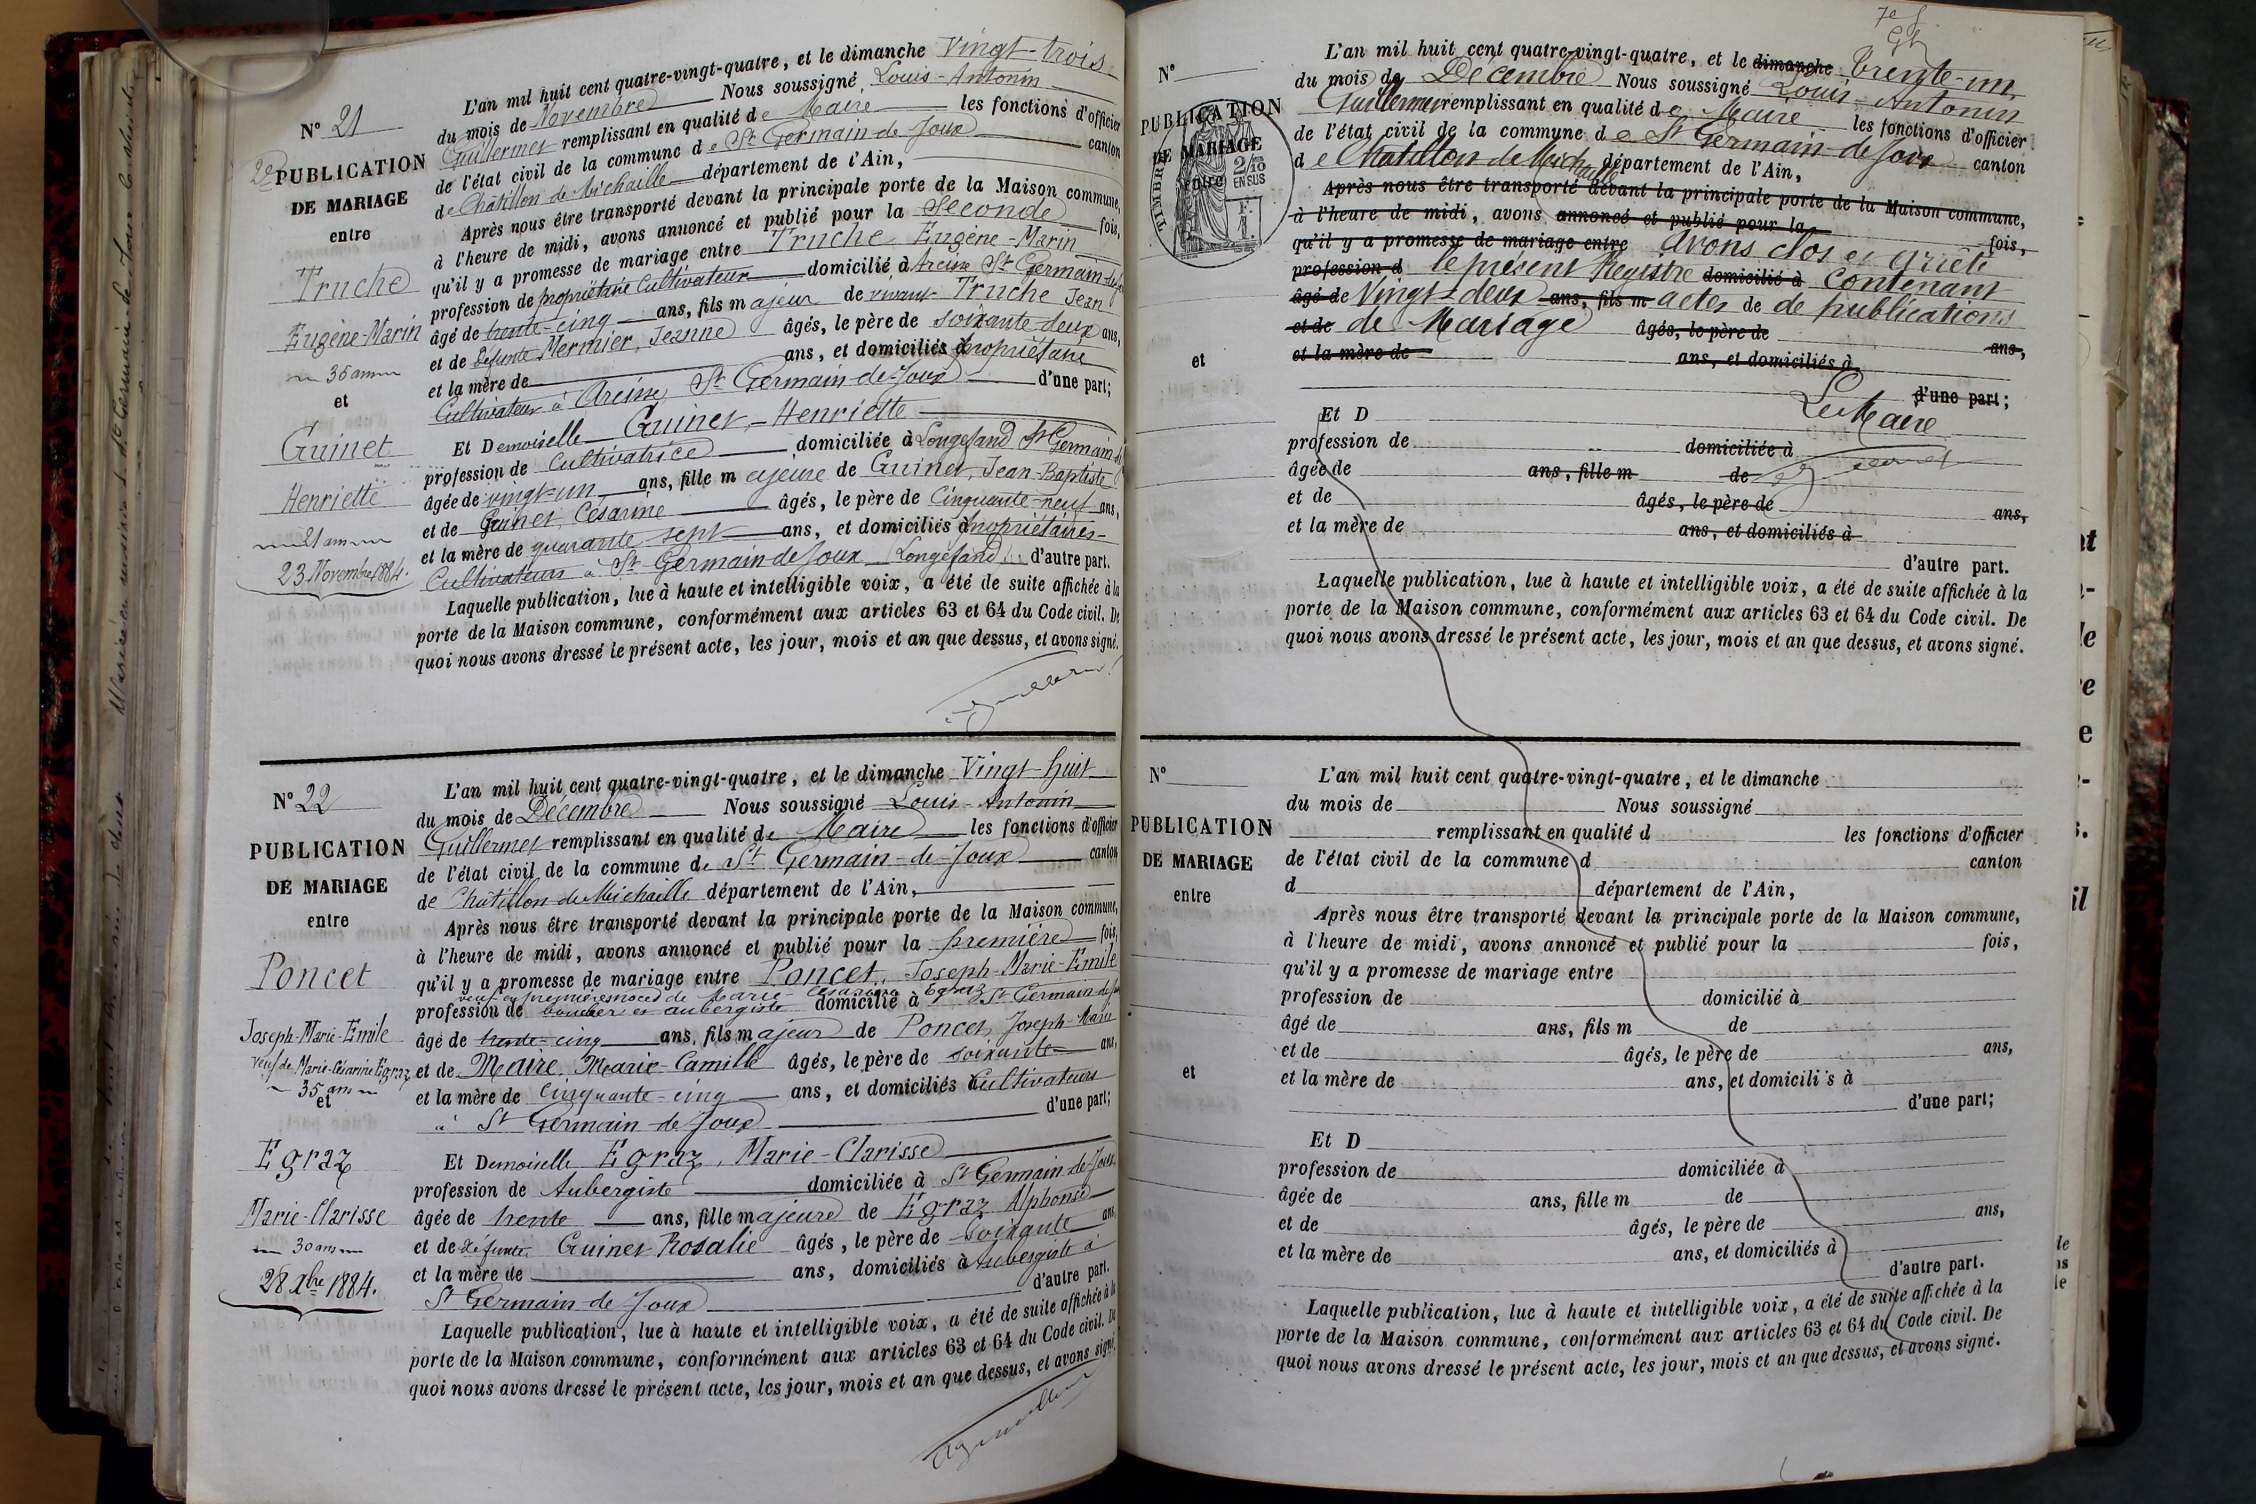 N° 21
2e PUBLICATION
DE MARIAGE
entre
Truche
Eugène-Marin
35 ans
et
Guinet
Henriette
21 ans
23 Novembre 1884.
L'an mil huit cent quatre-vingt-quatre, et le dimanche Vingt-trois
du mois de Novembre Nous soussigné Louis-Antonin
Guillermet remplissant en qualité de Maire les fonctions d'officier
de l'état civil de la commune de St Germain-de-Joux canton
de Châtillon de Michaille département de l'Ain,
Après nous être transporté devant la principale porte de la Maison commune,
à l'heure de midi, avons annoncé et publié pour la Seconde fois,
qu'il y a promesse de mariage entre Truche Eugène-Marin
profession de propriétaire Cultivateur domicilié à Arcine St Germain-de-J
âgé de trente-cinq ans, fils majeur de vivant Truche Jean
et de défunte Mermier, Jeanne âgés, le père de soixante-deux ans,
et la mère de ans, et domiciliés propriétaire
Cultivateur à Arcine, St Germain-de-Joux d'une part;
Et Demoiselle Guinet, Henriette
profession de Cultivatrice domiciliée à Longefand St Germain d
âgée de vingt-un ans, fille majeure de Guinet, Jean-Baptiste
et de Guinet, Césarine âgés, le père de Cinquante-neuf ans,
et la mère de quarante sept ans, et domiciliés propriétaires-
Cultivateurs à St Germain de Joux (Longefand) d'autre part.
Laquelle publication, lue à haute et intelligible voix, a été de suite affichée à la
porte de la Maison commune, conformément aux articles 63 et 64 du Code civil. De
quoi nous avons dressé le présent acte, les jour, mois et an que dessus, et avons signé.
Aguillermet
N° 22
PUBLICATION
DE MARIAGE
entre
Poncet
Joseph-Marie-Emile
veuf de Marie-Césarine Egraz
35 ans
et
Egraz
Marie-Clarisse
30 ans
28 Xbre 1884.
L'an mil huit cent quatre-vingt-quatre, et le dimanche Vingt-huit
du mois de Décembre Nous soussigné Louis-Antonin
Guillermet remplissant en qualité de Maire les fonctions d'officier
de l'état civil de la commune de St Germain-de-Joux canton
de Châtillon de Michaille département de l'Ain,
Après nous être transporté devant la principale porte de la Maison commune,
à l'heure de midi, avons annoncé et publié pour la première fois,
qu'il y a promesse de mariage entre Poncet, Joseph-Marie-Emile
veuf en premières noces de Marie-Césarine Egraz
profession de boucher et aubergiste domicilié à St Germain-de-Joux
âgé de trente-cinq ans, fils majeur de Poncet, Joseph-Marie
et de Maire, Marie-Camille âgés, le père de soixante ans,
et la mère de Cinquante-cinq ans, et domiciliés Cultivateurs
à St Germain-de-Joux d'une part;
Et Demoiselle Egraz, Marie-Clarisse
profession de Aubergiste domiciliée à St Germain-de-Joux
âgée de trente ans, fille majeure de Egraz Alphonse
et de défunte Guinet Rosalie âgés, le père de Soixante ans,
et la mère de ans, domiciliés à Aubergiste à
St Germain de Joux d'autre part.
Laquelle publication, lue à haute et intelligible voix, a été de suite affichée à la
porte de la Maison commune, conformément aux articles 63 et 64 du Code civil. De
quoi nous avons dressé le présent acte, les jour, mois et an que dessus, et avons signé.
Aguillermet
7e f
N°
PUBLICATION
DE MARIAGE
entre
TIMBRE
2/10
EN SUS
et
L'an mil huit cent quatre-vingt-quatre, et le dimanche trente-un
du mois de Décembre Nous soussigné Louis-Antonin
Guillermet remplissant en qualité de Maire les fonctions d'officier
de l'état civil de la commune de St Germain-de-Joux canton
de Chatillon de Michaille département de l'Ain,
Après nous être transporté devant la principale porte de la Maison commune,
à l'heure de midi, avons annoncé et publié pour la fois,
qu'il y a promesse de mariage entre avons clos et arrêté
profession d le présent Registre domicilié à Contenant
âgé de Vingt-deux ans, fils m actes de de publications
et de de Mariage âgés, le père de ans,
et la mère de ans, et domiciliés à
d'une part;
Le Maire
Et D
profession de domiciliée à
âgée de ans, fille m de
et de âgés, le père de ans,
et la mère de ans, et domiciliés à
d'autre part.
Laquelle publication, lue à haute et intelligible voix, a été de suite affichée à la
porte de la Maison commune, conformément aux articles 63 et 64 du Code civil. De
quoi nous avons dressé le présent acte, les jour, mois et an que dessus, et avons signé.
N°
PUBLICATION
DE MARIAGE
entre
et
L'an mil huit cent quatre-vingt-quatre, et le dimanche
du mois de Nous soussigné
remplissant en qualité d les fonctions d'officier
de l'état civil de la commune d canton
d département de l'Ain,
Après nous être transporté devant la principale porte de la Maison commune,
à l'heure de midi, avons annoncé et publié pour la fois,
qu'il y a promesse de mariage entre
profession de domicilié à
âgé de ans, fils m de
et de âgés, le père de ans,
et la mère de ans, et domicili s à
d'une part;
Et D
profession de domiciliée à
âgée de ans, fille m de
et de âgés, le père de ans,
et la mère de ans, et domiciliés à
d'autre part.
Laquelle publication, lue à haute et intelligible voix, a été de suite affichée à la
porte de la Maison commune, conformément aux articles 63 et 64 du Code civil. De
quoi nous avons dressé le présent acte, les jour, mois et an que dessus, et avons signé.